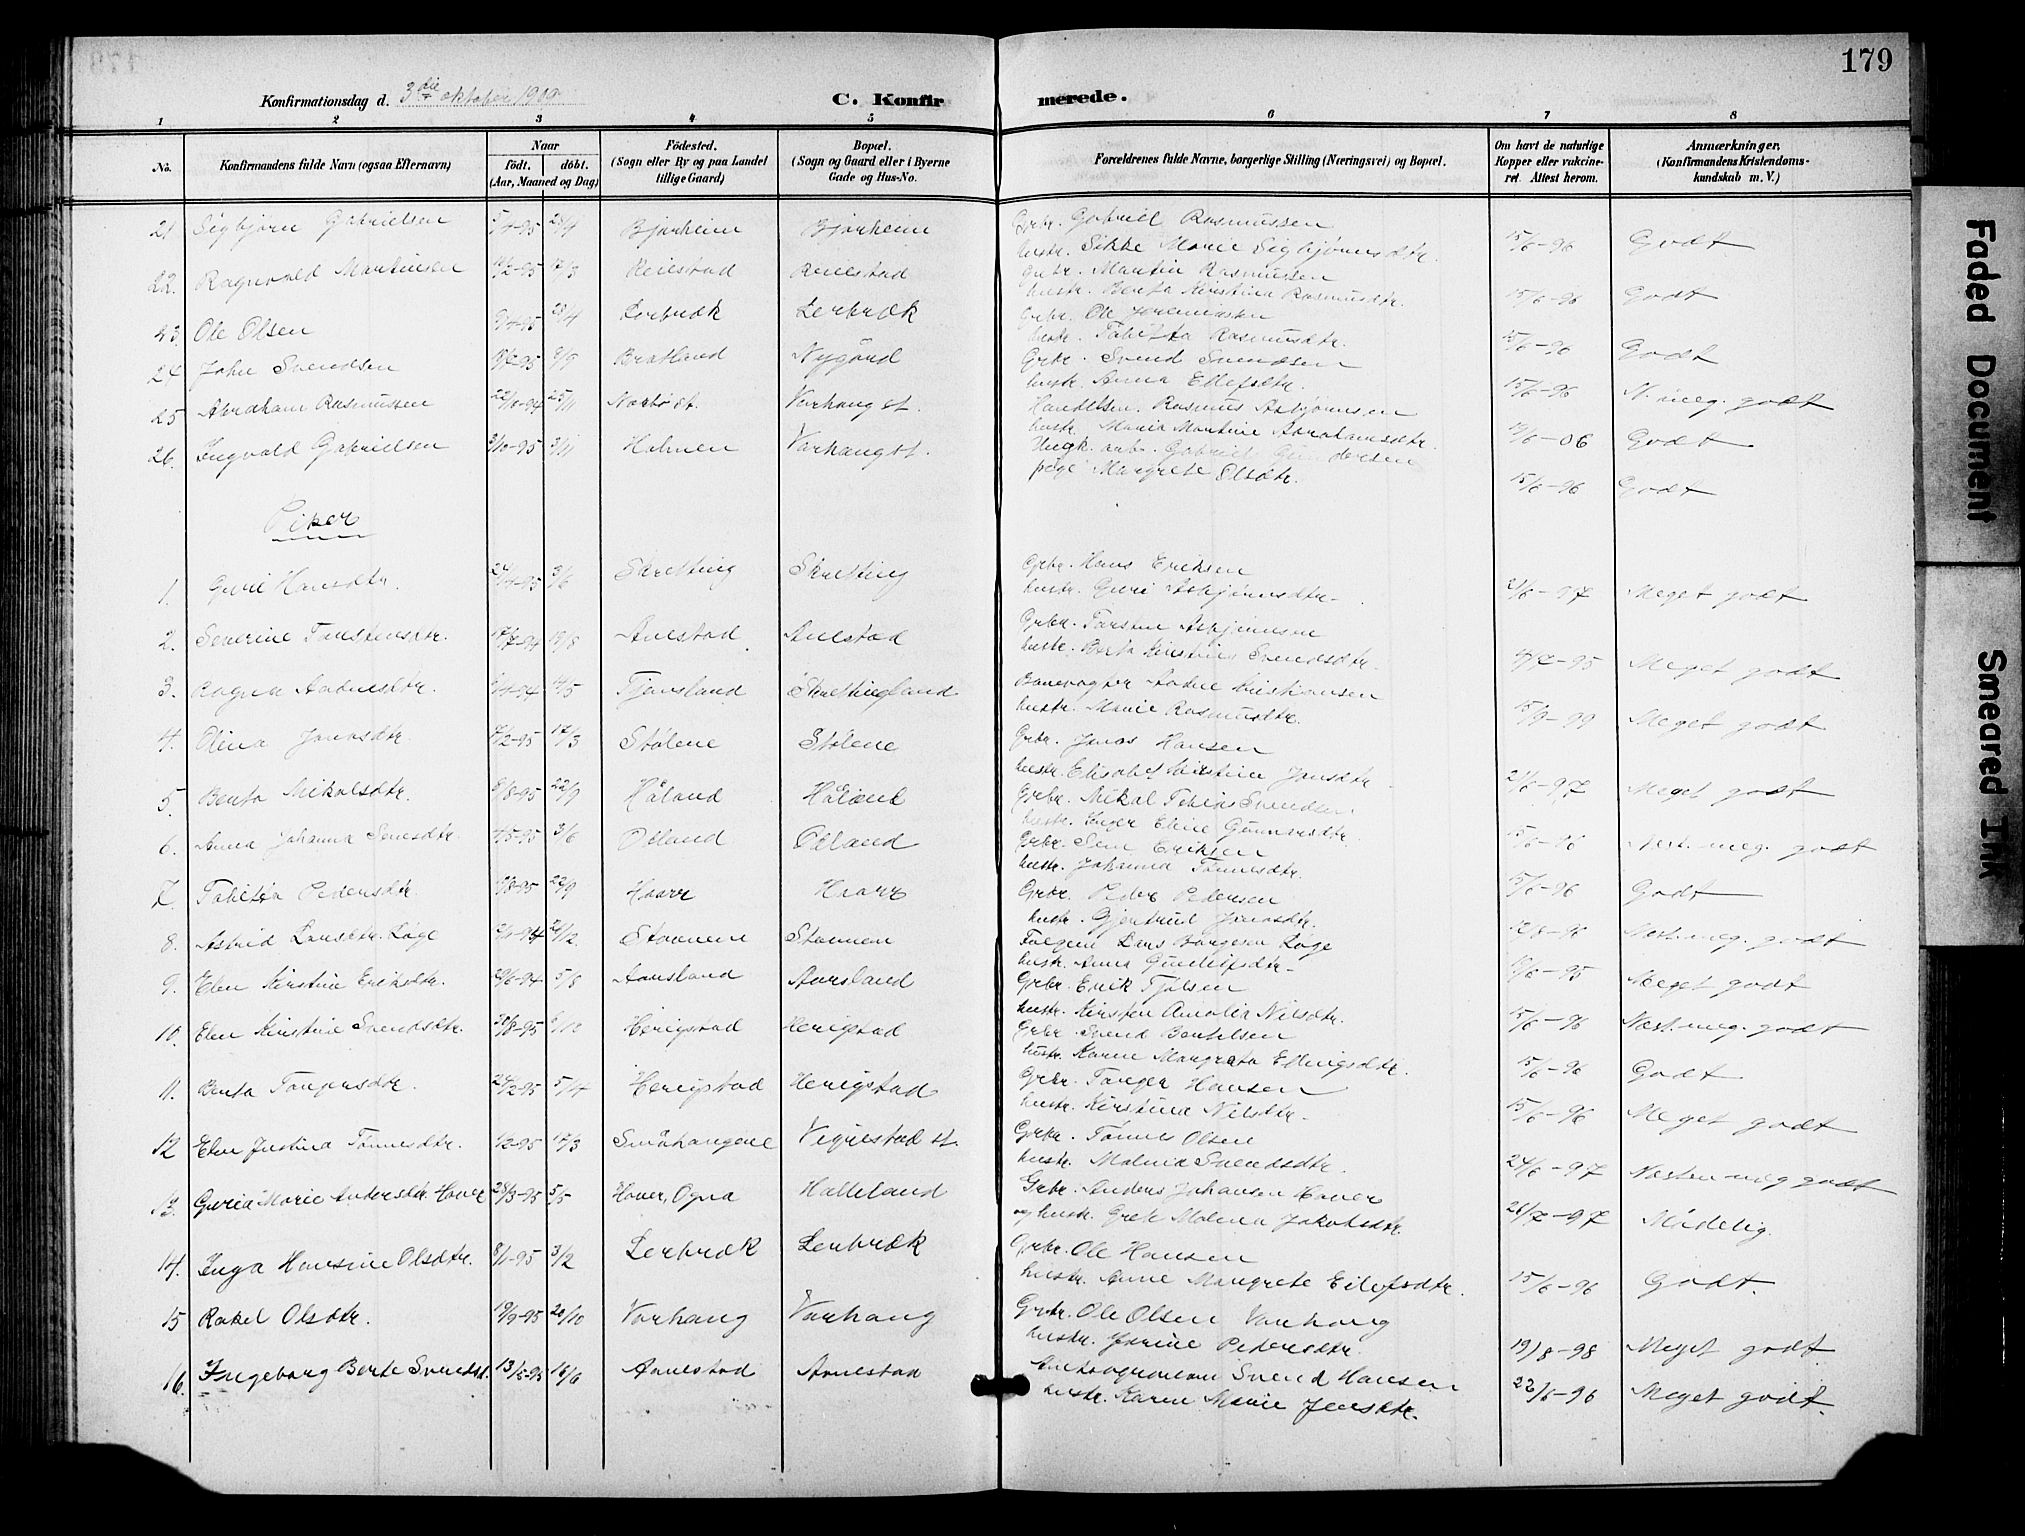 179
Konfirmationsdag d. 3die oktober 1909
C. Konfirmerede.
1 2 3 4 5 6 7 8
No.
Konfirmandens fulde Navn (ogsaa Efternavn)
Naar
født. døbt.
(Aar, Maaned og Dag)
Fødested.
(Sogn eller By og paa Landet
tillige Gaard)
Bopæl.
(Sogn og Gaard eller i Byerne
Gade og Hus-No.
Forældrenes fulde Navne, borgerlige Stilling (Næringsvei) og Bopæl.
Om havt de naturlige
Kopper eller vakcine-
ret. Attest herom.
Anmærkninger.
(Konfirmandens Kristendoms-
kundskab m. V.)
21 Sigbjørn Gabrielsen Bjorheim Bjorheim Grbr. Gabriel Rasmussen
hustr. Sikke Marie Sigbjørnsdtr. 15/6-96 Godt
22. Ragnvald Martinsen Reiestad Reiestad Grbr. Martin Rasmussen
hustr. Berta Kirstina Rasmusdtr. 15/6-96 Godt
23. Ole Olsen 23/4 Lerbræk Lerbræk Grbr. Ole Jeremiassen
hustr. Tabitta Rasmusdtr. 15/6-96 Godt
24 John Svendsen Bratland Nygård Grbr. Svend Svendsen
hustr. Anna Ellefsdtr. 15/6-96 N. meg. godt
25 Abraham Rasmussen 25/11 Nærbø st. Varhaug st. Handelsm. Rasmus Asbjørnsen
hustr. Maria Martine Abrahamsdtr. Godt
26. Ingvald Gabrielsen 3/10-95 3/11 Holmen Varhaug st. Ungk. arb. Gabriel Gundersen
pige Margrete Olsdtr. 15/6-96 Godt
Piker
1. Guri Hansdtr. 3/6 Skretting Skretting Grbr. Hans Eriksen
hustr. Guri Asbjørnsdtr. 21/6-97 Meget godt
2. Severine Torstensdtr. 19/8 Aniestad Aniestad Grbr. Torsten Asbjørnsen
hustr. Berta Kirstine Svendsdtr. Meget godt
3. Ragna Aadnesdtr. Tjensland Skrettingland Banevogter Aadne Kristiansen
hustr. Marie Rasmusdtr. 15/9-99 Meget godt
4. Olina Jonasdtr. 17/3 Stølene Stølene Grbr. Jonas Hansen
hustr. Elisabet Kirstine Jonsdtr. 21/6-97 Meget godt
5. Berta Mikalsdtr. 22/9 Håland Håland Grbr. Mikal Tobias Svendsen
hustr. Inger Eline Gunnarsdtr. 15/6-96 Næst. meg. godt
6. Anna Johanna Semsdtr. 3/6 Odland Odland Grbr. Sem Eriksen
hustr. Johanna Tønnesdtr. 15/6-96 Godt
7. Tabitta Pedersdtr. 22/9 Haarr Haarr Grbr. Peder Pedersen
hustr. Gjertrud Jonasdtr. Næst. meg. godt
8. Astrid Larsdtr. Løge Stavnem Stavnem Lars Børgesen Løge
hustr. Anna Gundersdtr. Meget godt
9. Elen Kirstine Eriksdtr. 5/8 Aarsland Aarsland Grbr. Erik Tjølsen
hustr. Kirsten Amalia Nilsdtr. 15/6-96 Næst. meg. godt
10. Elen Kirstine Svendsdtr. Herigstad Herigstad Grbr. Svend Bertelsen
hustr. Karen Margreta Ellingsdtr. 15/6-96 Godt
11. Berta Torgersdtr. 24/2-95 5/4 Herigstad Herigstad Grbr. Torger Hansen
hustr. Kirstina Nilsdtr. 15/6-96 Meget godt
12 Elen Justina Tønnesdtr. 17/3 Småhaugene Vigrestad st. Grbr. Tønnes Olsen
hustr. Malena Svendsdtr. 24/6-97 Næsten meg godt
13. Guria Marie Andersdtr. Haver 28/3-95 5/5 Haver, Ogna Halleland Grbr. Anders Johansen Haver
og hustr. Grete Malena Jakobsdtr. 26/7-97 Mådelig.
14. Inga Hansine Olsdtr. 8/1-95 3/2 Lerbræk Lerbræk Grbr. Ole Hansen
hustr. Anne Margrete Eilefsdtr. 15/6-96 Godt.
15 Rakel Olsdtr. 19/9-95 20/10 Varhaug Varhaug Grbr. Ole Olsen Varhaug
hustr. Jorine Pedersdtr. 19/8-98 Meget godt
16. Ingeborg Berte Svendsd. 13/5-95 16/6 Aniestad Aniestad Svend Hansen
hustr. Karen Marie Jensdtr. 22/6-96 Meget godt.
Faded Document
Smeared Ink